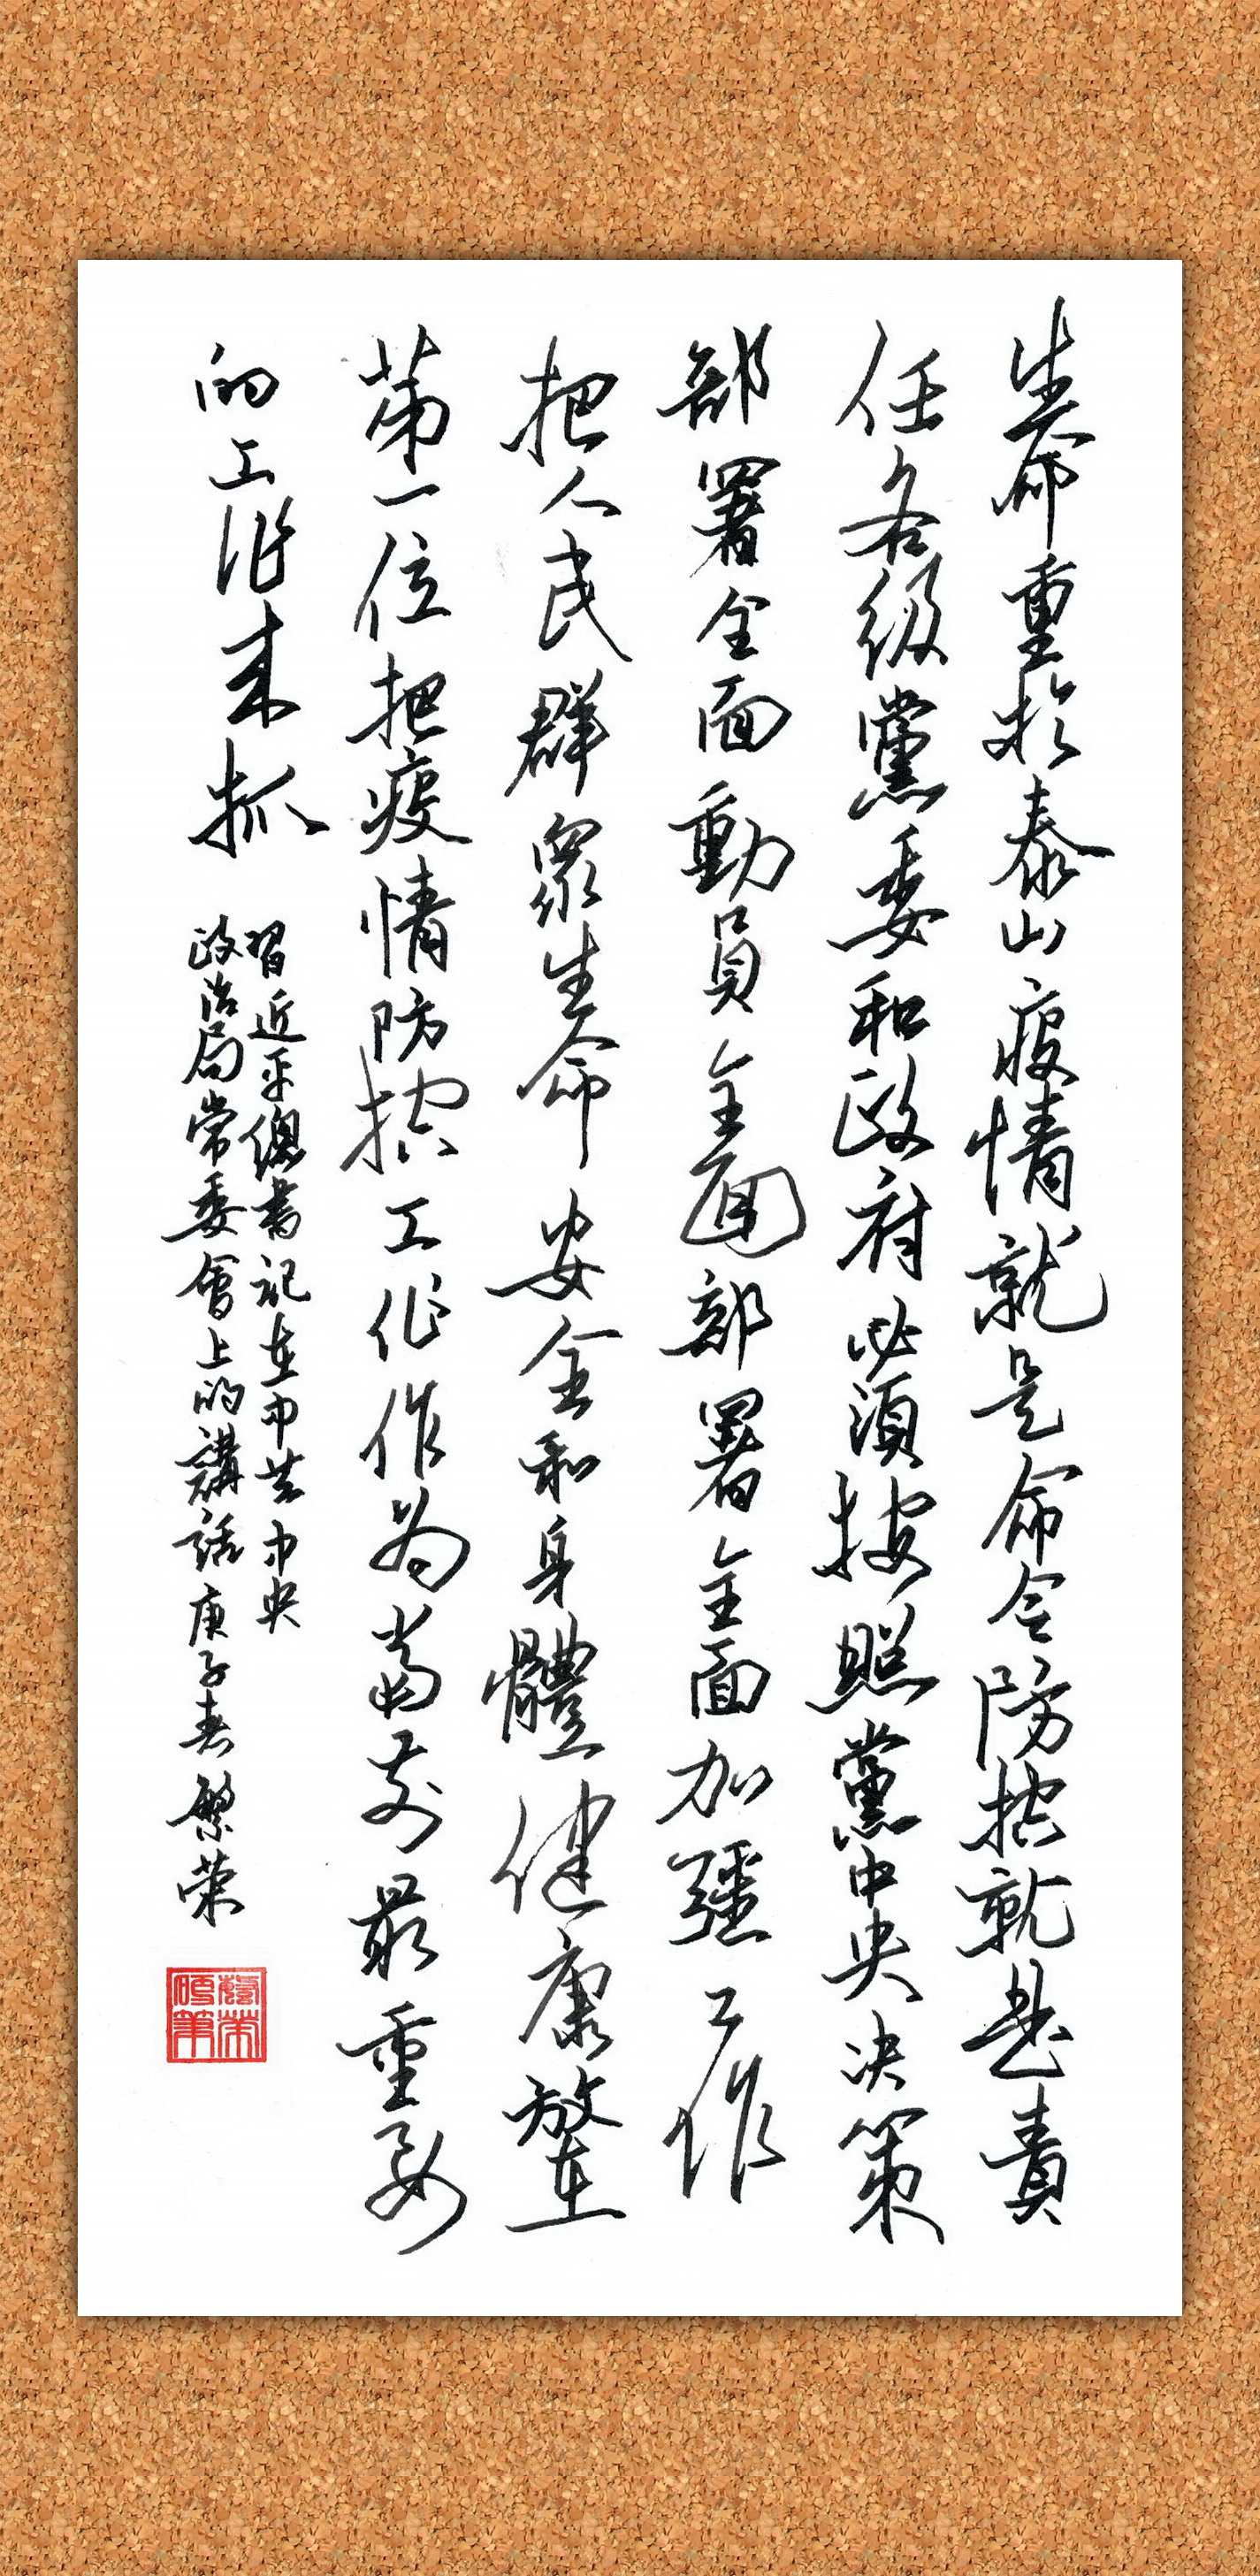 生命重於泰山疫情就是命令防控就是責
任各級黨委和政府必須按照黨中央决策
部署全面動員全面部署全面加強工作
把人民群眾生命安全和身體健康放在
第一位把疫情防控工作作为當前最重要
的工作来抓
習近平總書記在中共中央
政治局常委會上的講話庚子春繁荣